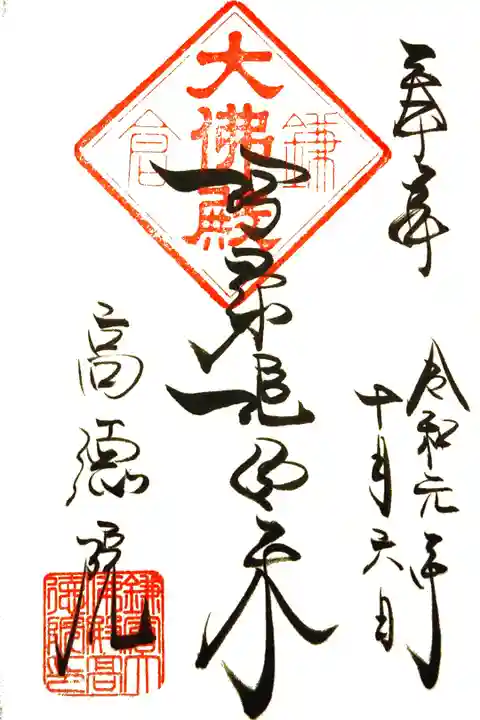 奉拝
令和元年
十月六日
大佛殿
鎌倉
阿弥陀如来
高徳院